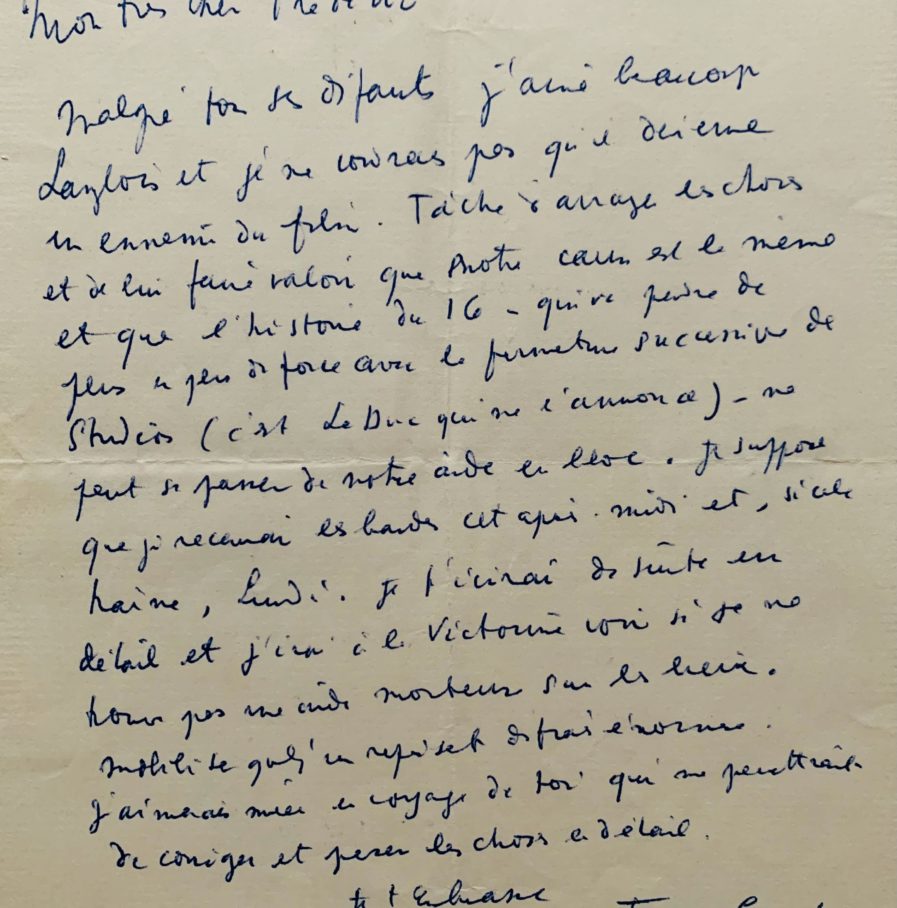 Mon très cher Frédéric
Malgré tous ses défauts j'aime beaucoup
Langlois et je ne voudrais pas qu'il devienne
un ennemi du film. Tâche d'arranger les choses
et de lui faire valoir que notre cause est la même
et que l'histoire du 16 - qui va perdre de
plus en plus de force avec la fermeture successive de
Studios (c'est Le Duc qui me l'annonce) - ne
peut se passer de notre aide en bloc. Je suppose
que je recevrai les bandes cet après-midi et, si cela
traîne, Lundi. Je t'écrirai de suite en
détail et j'irai à la Victorine voir si je ne
trouve pas une aide monteuse sur les lieux.
mobiliser quelq'un représente des frais énormes.
J'aimerais mieux en voyage de toi qui me permettrait
de corriger et peser les choses en détail.
Je t'embrasse